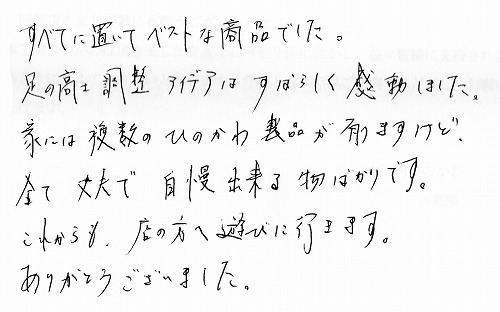 すべてに置いてベストな商品でした。
足の高さ調整 アイデアはすばらしく感動しました。
家には複数のひのかわ製品が有りますけど、
全て丈夫で自慢出来る物ばかりです。
これからも、店の方へ遊びに行きます。
ありがとうございました。